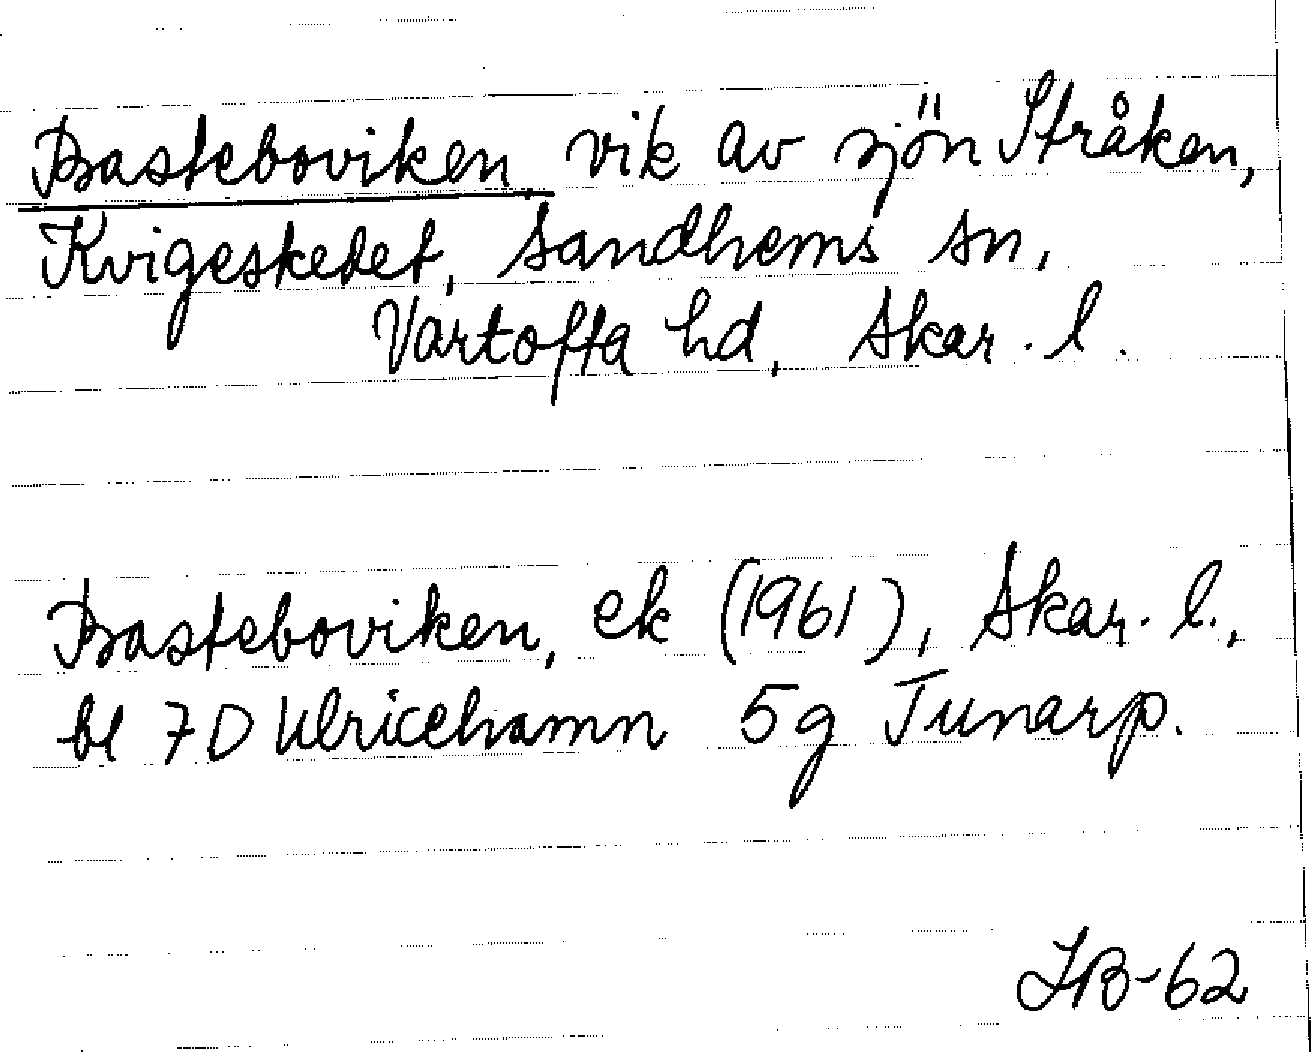 Basteboviken, vik av sjön Stråken,
Kvigeskedet, Sandhems sn,
Vartofta hd, Skar. l.
Basteboviken, ek (1961), Skar. l.,
bl 7D Ulricehamn 5g Tunarp.
IB-62